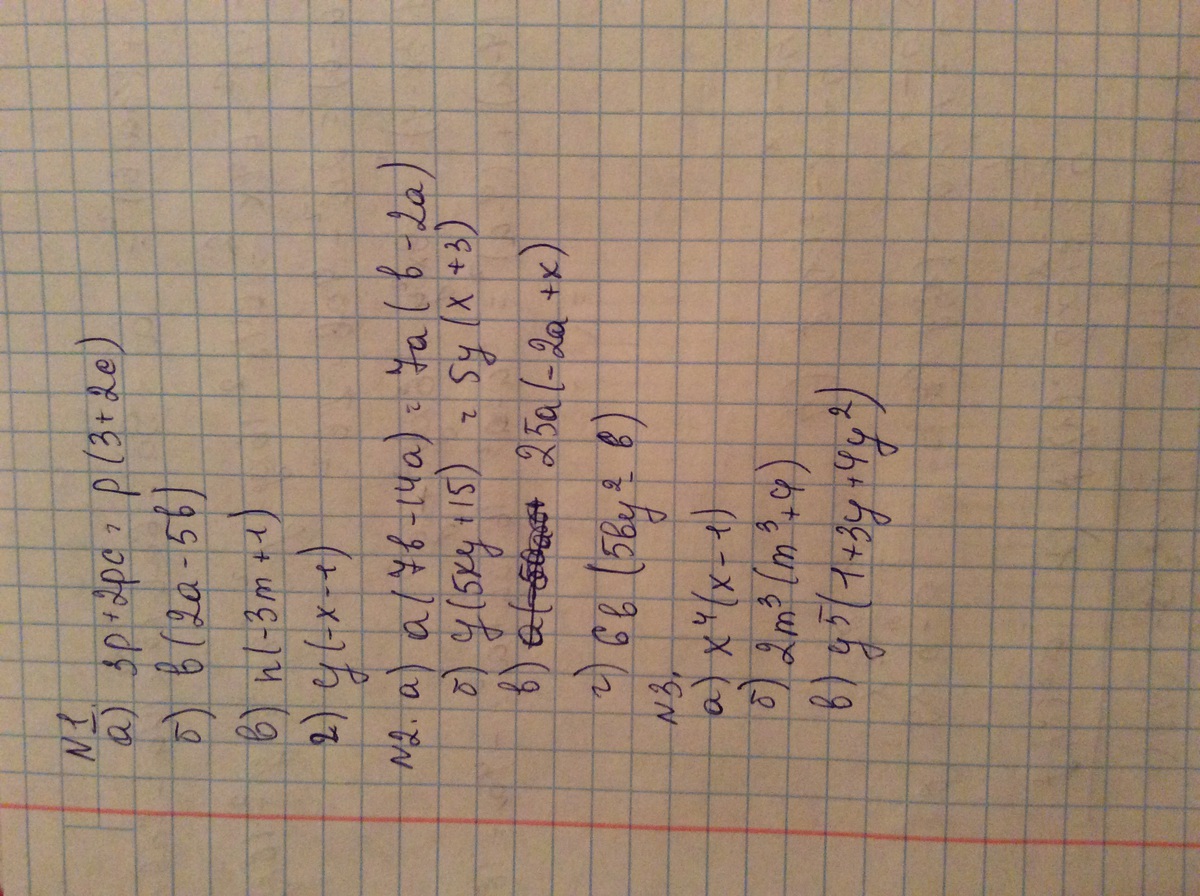 N1
а) 3p+2pc = p(3+2c)
б) в(2a-5в)
в) n(-3m+1)
г) y(-x-1)
N2. а) a(7в-14a) = 7a(в-2a)
б) y(5xy+15) = 5y(x+3)
в) 25a(-2a+x)
г) 6в(5вy²-в)
N3.
а) x⁴(x-1)
б) 2m³(m³+4)
в) y⁵(1+3y+4y²)